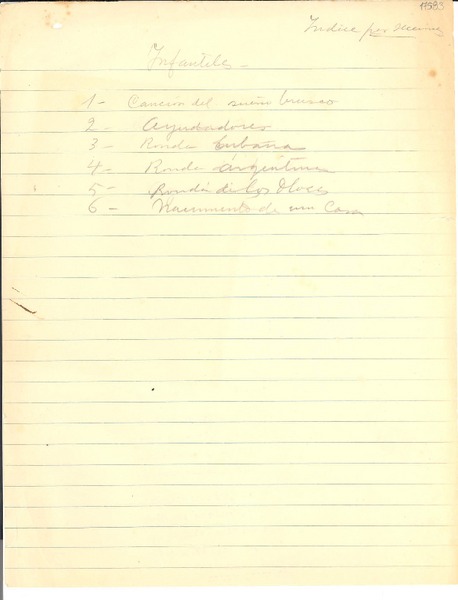 17983
Indice por
Infantiles -
1 - Canción del sueño
2 - Ayudadores
3 - Ronda Cubana
4 - Ronda Argentina
5 - Ronda de los
6 - Nacimiento de una Casa